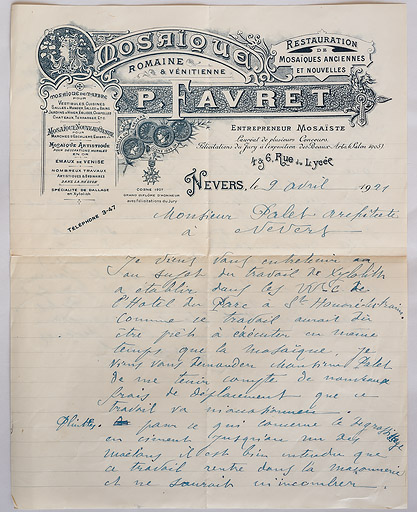 Mosaïque
ROMAINE
& VÉNITIENNE
RESTAURATION
DE
MOSAÏQUES ANCIENNES
ET NOUVELLES
P. FAVRET
MOSAÏQUE DE MARBRE
POUR
VESTIBULES CUISINES
SALLES À MANGER SALLES DE BAINS
JARDINS D'HIVER ÉGLISES CHAPELLES
CHATEAUX TERRASSES ETC
MOSAÏQUE
MOSAÏQUE ARTISTIQUE
POUR DÉCORATIONS MURALES
ÉMAUX DE VENISE
NOMBREUX TRAVAUX
SPÉCIALITÉ DE DALLAGE
en Xylolith
TÉLÉPHONE 3-47
COSNE 1907
GRAND DIPLÔME D'HONNEUR
avec félicitations du Jury
ENTREPRENEUR MOSAÏSTE
Lauréat de plusieurs Concours
Félicitations du Jury à l'exposition des Beaux-Arts
4 & 6, Rue du Lycée
NEVERS, le 9 avril 1921
Monsieur Palet architecte
à Nevers
Je viens vous entretenir
au sujet du travail de Xylolith
à établir dans les W.C. de
l'Hotel du Parc à St Honoré
comme ce travail aurait dû
être prêt à exécuter en même
temps que la mosaïque, je
viens vous demander Monsieur Palet
de me tenir compte de nouveaux
frais de déplacement que ce
travail va
Plinthes. pour ce qui concerne le
en ciment jusqu'au nu des
moëlons il est bien entendu que
ce travail rentre dans la maçonnerie
et ne saurait m'incomber.